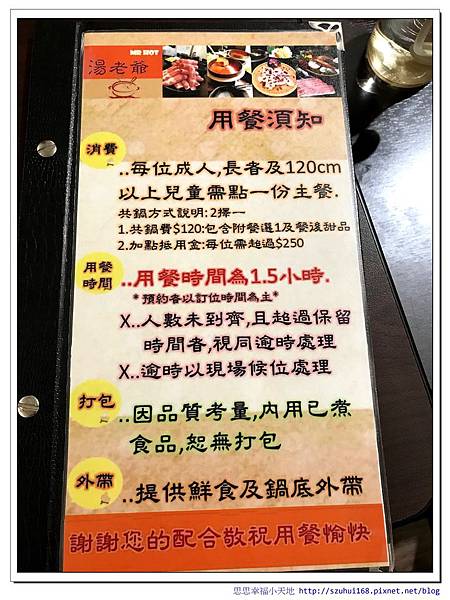 MR HOT
湯老爺
用餐須知
消費
..每位成人,長者及120cm
以上兒童需點一份主餐.
共鍋方式說明:2擇一
1.共鍋費$120:包含附餐選1及餐後甜品
2.加點抵用金:每位需超過$250
用餐
時間
..用餐時間為1.5小時.
*預約者以訂位時間為主*
X..人數未到齊,且超過保留
時間者,視同逾時處理
X..逾時以現場候位處理
打包
..因品質考量,內用已煮
食品,恕無打包
外帶
..提供鮮食及鍋底外帶
謝謝您的配合敬祝用餐愉快
思思幸福小天地 http://szuhui168.pixnet.net/blog